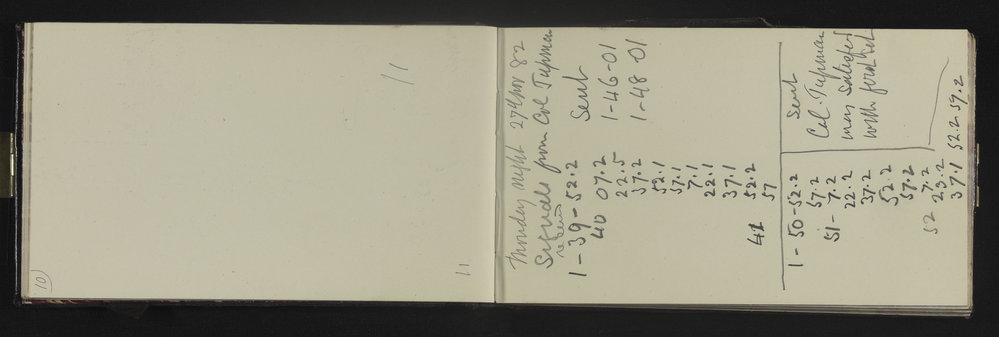 10
11
11
Monday night 27 Nov 82
Signals from Col Tupman
1-39-52.2 Sent
40 07.2 1-46-01
22.5 1-48 01
37.2
52.1
57.1
7.1
22.1
37.1
52.2
41 57
1-50-52.2 Sent
57.2 Col. Tupman
51- 7.2 may satisfied
22.2 with first set
37.2
52.2
57.2
52 7.2
23.2
37.1 52.2 59.2